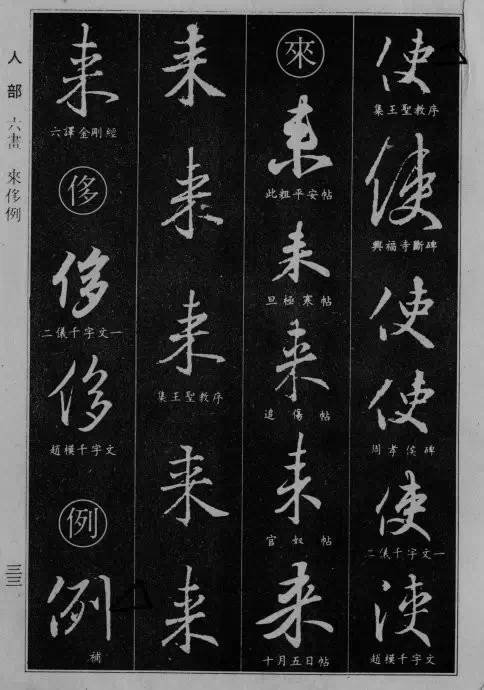 使
集王聖教序
使
興福寺斷碑
使
使
周孝侯碑
使
二儀千字文一
使
趙模千字文
來
来
此粗平安帖
来
旦極寒帖
来
追傷帖
来
官奴帖
来
十月五日帖
来
来
来
集王聖教序
来
来
来
六譯金剛經
侈
侈
二儀千字文一
侈
趙模千字文
例
例
補
人部 六畫 來侈例
三三